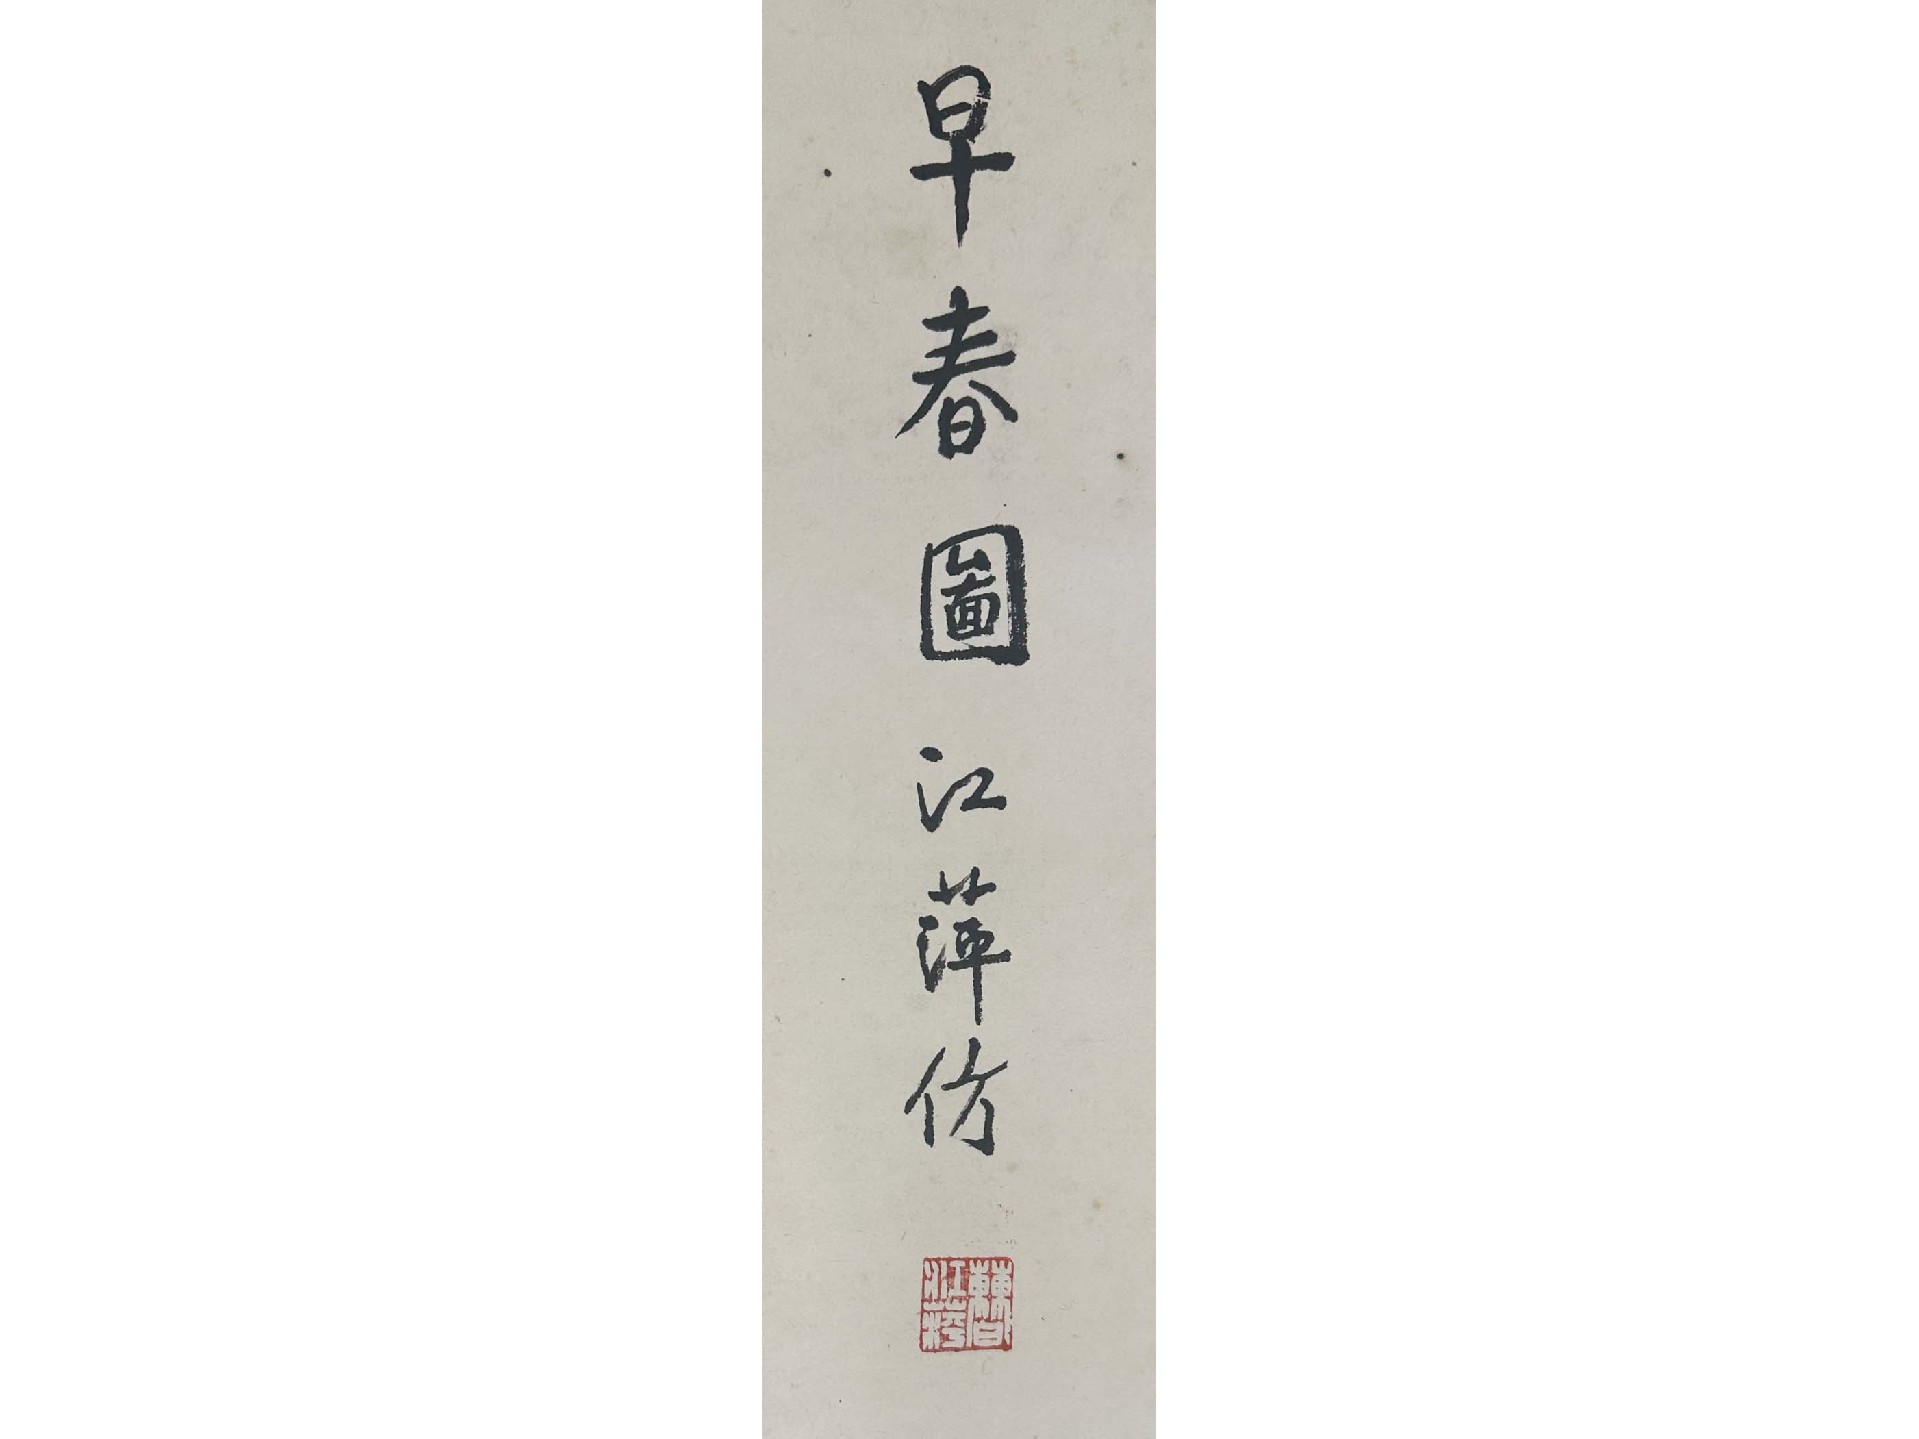 早春圖 江萍仿